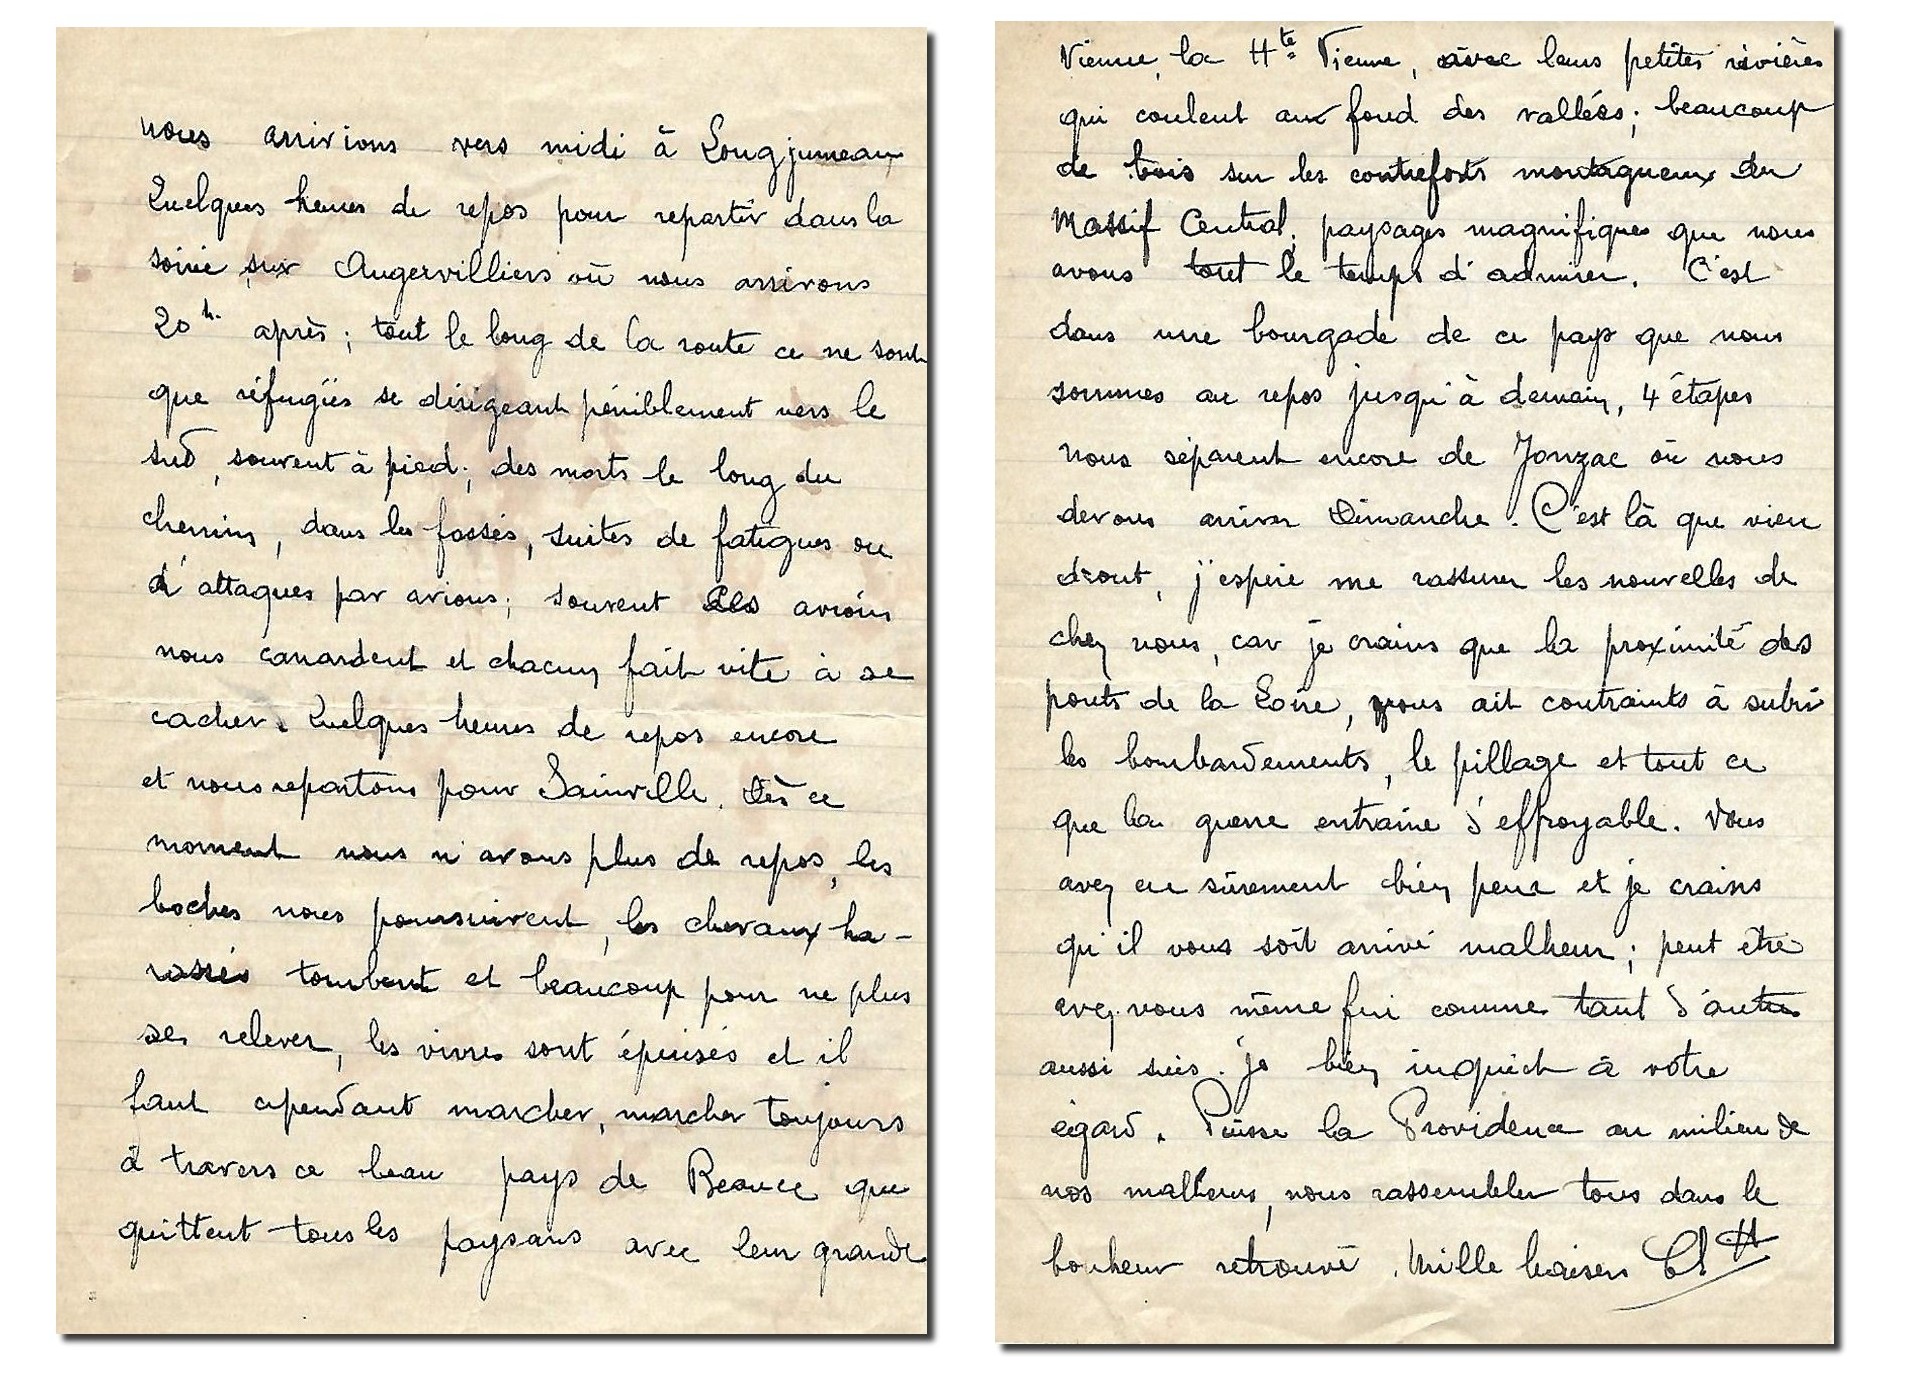 nous arrivions vers midi à Longjumeau
Quelques heures de repos pour repartir dans la
soirée sur Angervilliers où nous arrivons
20 h. après ; tout le long de la route ce ne sont
que réfugiés se dirigeant péniblement vers le
sud, souvent à pied ; des morts le long du
chemin, dans les fossés, suites de fatigues ou
d'attaques par avions ; souvent les avions
nous canardent et chacun fait vite à se
cacher. Quelques heures de repos encore
et nous repartons pour Sainville. Dès ce
moment nous n'avons plus de repos, les
boches nous poursuivent, les chevaux ha-
rassés tombent et beaucoup pour ne plus
se relever, les vivres sont épuisés et il
faut cependant marcher, marcher toujours
à travers ce beau pays de Beauce que
quittent tous les paysans avec leur grande
Vienne, la Hte Vienne, avec leurs petites rivières
qui coulent aux fond des vallées ; beaucoup
de bois sur les contreforts montagneux du
Massif Central, paysages magnifiques que nous
avons tout le temps d'admirer. C'est
dans une bourgade de ce pays que nous
sommes au repos jusqu'à demain, 4 étapes
nous séparent encore de Jonzac où nous
devons arriver Dimanche. C'est là que vien
dront, j'espère me rassurer les nouvelles de
chez nous, car je crains que la proximité des
ponts de la Loire, vous ait contraints à subir
les bombardements, le pillage et tout ce
que la guerre entraine d'effroyable. Vous
avez eu sûrement bien peur et je crains
qu'il vous soit arrivé malheur ; peut etre
avez vous même fui comme tant d'autres
aussi suis-je bien inquiet à votre
égard. Puisse la Providence au milieu de
nos malheurs, nous rassembler tous dans le
bonheur retrouvé. Mille baisers Ch H